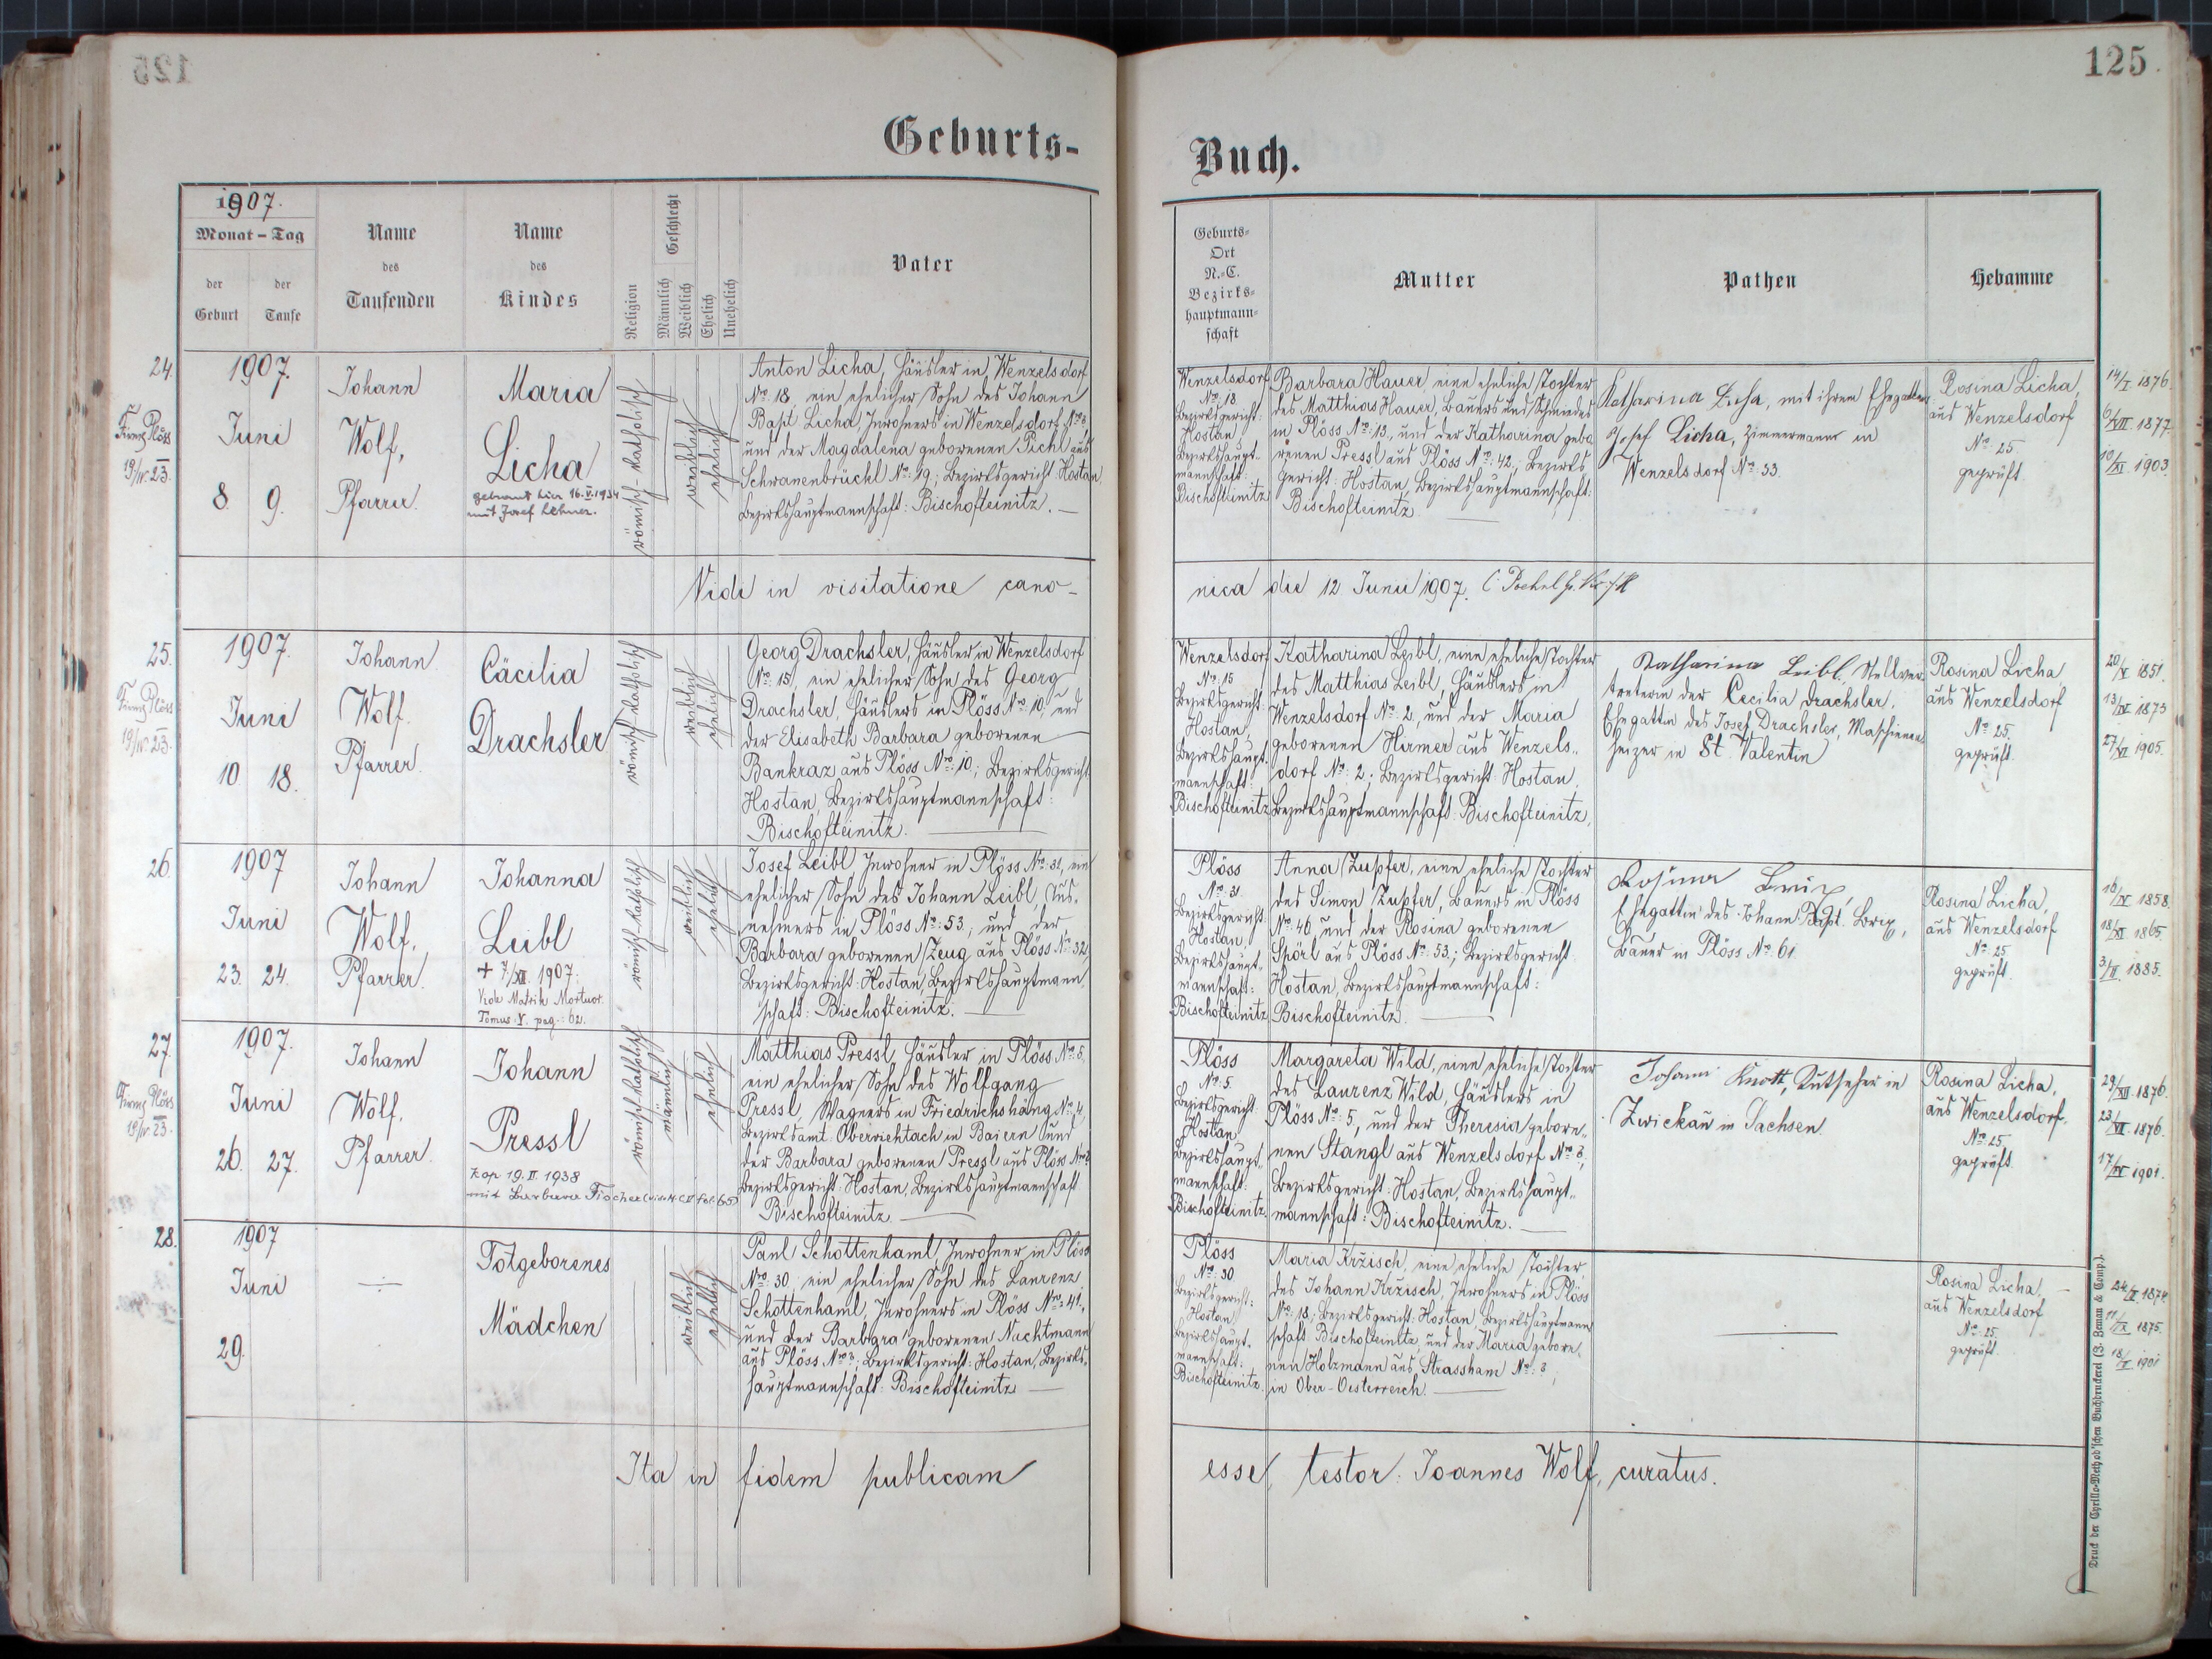 125
125.
Geburts-
Buch.
1907.
Monat – Tag
der Geburt
der Taufe
Name
des
Taufenden
Name
des
Kindes
Religion
Geschlecht
Männlich
Weiblich
Ehelich
Unehelich
Vater
Geburts-
Ort
N.-C.
Bezirks-
hauptmann-
schaft
Mutter
Pathen
Hebamme
24.
Firmg Plöss
19/IV. 23.
1907.
Juni
8. 9.
Johann
Wolf,
Pfarrer.
Maria
Licha
getraut hier 16.V.1934
mit Josef Lehner.
römisch-katholisch
weiblich
ehelich
Anton Licha, Häusler in Wenzelsdorf
No: 18, ein ehelicher Sohn des Johann
Bapt Licha, Inwohners in Wenzelsdorf No: 8,
und der Magdalena geborenen Pichl aus
Schwanenbrückl No: 19.; Bezirksgericht Hostau,
Bezirkshauptmannschaft: Bischofteinitz. —
Wenzelsdorf
No: 18
Bezirksgericht:
Hostau,
Bezirkshaupt-
mannschaft:
Bischofteinitz
Barbara Hauer, eine eheliche Tochter
des Matthias Hauer, Bauers und Schmiedes
in Plöss No: 13., und der Katharina gebo
renen Pressl aus Plöss No: 42.; Bezirks
gericht: Hostau, Bezirkshauptmannschaft:
Bischofteinitz. —
Katharina Licha, mit ihrem Ehegatten
Josef Licha, Zimmermann in
Wenzelsdorf No: 33.
Rosina Licha,
aus Wenzelsdorf
No: 25.
geprüft.
14/I. 1876.
6/VII. 1877.
10/XI. 1903.
Vidi in visitatione cano-
nica die 12. Junii 1907.
25.
Firmg Plöss
19/IV. 23.
1907.
Juni
10. 18.
Johann
Wolf.
Pfarrer.
Cäcilia
Drachsler
römisch-katholisch
weiblich
ehelich
Georg Drachsler, Häusler in Wenzelsdorf
No: 15, ein ehelicher Sohn des Georg
Drachsler, Häuslers in Plöss No: 10, und
der Elisabeth Barbara geborenen
Bankraz aus Plöss No: 10.; Bezirksgericht
Hostau, Bezirkshauptmannschaft:
Bischofteinitz. —
Wenzelsdorf
No: 15
Bezirksgericht:
Hostau,
Bezirkshaupt-
mannschaft:
Bischofteinitz
Katharina Leibl, eine eheliche Tochter
des Matthias Leibl, Häuslers in
Wenzelsdorf No: 2, und der Maria
geborenen Hirmer aus Wenzels„
dorf No: 2.; Bezirksgericht: Hostau,
Bezirkshauptmannschaft: Bischofteinitz.
Katharina Leibl, Stellver
treterin der Cecilia Drachsler,
Ehegattin des Josef Drachsler, Maschienen
heizer in St. Valentin
Rosina Licha
aus Wenzelsdorf
No: 25.
geprüft.
20/V. 1851.
13/IV. 1873
27/VI. 1905.
26.
1907
Juni
23. 24.
Johann
Wolf,
Pfarrer.
Johanna
Leibl
+ 7/XII. 1907.
Vide Matrik Mortuor.
Tomus: V. pag.: 62.
römisch-katholisch
weiblich
ehelich
Josef Leibl Inwohner in Plöss No: 31, ein
ehelicher Sohn des Johann Leibl, Aus-
nehmers in Plöss No: 53, und der
Barbara geborenen Zeug aus Plöss No: 32,
Bezirksgericht: Hostau, Bezirkshauptmann
schaft: Bischofteinitz. —
Plöss
No: 31
Bezirksgericht:
Hostau,
Bezirkshaupt„
mannschaft:
Bischofteinitz
Anna Zupfer, eine eheliche Tochter
des Simon Zupfer, Bauers in Plöss
No: 46 und der Rosina geborenen
Spörl aus Plöss No: 53.; Bezirksgericht
Hostau, Bezirkshauptmannschaft:
Bischofteinitz. —
Rosina
Ehegattin des Johann Bapt. Brix,
Bauer in Plöss No: 61.
Rosina Licha,
aus Wenzelsdorf
No: 25
geprüft.
16/IV. 1858
18/XI. 1865.
3/II. 1885.
27.
Firmg Plöss
19/IV. 23.
1907.
Juni
26. 27.
Johann
Wolf,
Pfarrer.
Johann
Pressl
kop. 19. II. 1938
mit Barbara Fischer
römisch-katholisch
männlich
ehelich
Matthias Pressl, Häusler in Plöss No: 5.
ein ehelicher Sohn des Wolfgang
Pressl, Wagners in Friedrichshäng No: 4,
Bezirksamt: Oberviechtach in Baiern und
der Barbara geborenen Pressl aus Plöss
Bezirksgericht: Hostau, Bezirkshauptmannschaft
Bischofteinitz. —
Plöss
No: 5.
Bezirksgericht:
Hostau
Bezirkshaupt„
mannschaft:
Bischofteinitz.
Margareta Wild, eine eheliche Tochter
des Laurenz Wild, Häuslers in
Plöss No: 5, und der Theresia gebore„
nen Stangl aus Wenzelsdorf No: 8,
Bezirksgericht: Hostau, Bezirkshaupt„
mannschaft: Bischofteinitz. —
Johann Knott, Kutscher in
Zwickau in Sachsen.
Rosina Licha,
aus Wenzelsdorf.
No: 25.
geprüft.
29/XII. 1876.
23/VI. 1876.
17/IV. 1901.
28.
1907
Juni
29.
Totgeborenes
Mädchen
weiblich
ehelich
Paul Schottenhaml, Inwohner in Plöss
No: 30 ein ehelicher Sohn des Laurenz
Schottenhaml, Inwohners in Plöss No: 41.,
und der Barbara geborenen Nachtmann
aus Plöss; Bezirksgericht: Hostau, Bezirks„
hauptmannschaft: Bischofteinitz —
Plöss
No: 30
Bezirksgericht:
Hostau
Bezirkshaupt„
mannschaft:
Bischofteinitz.
Maria Kržisch, eine eheliche Tochter
des Johann Kržisch, Inwohners in Plöss
No: 18; Bezirksgericht: Hostau, Bezirkshauptmann
schaft Bischofteinitz, und der Maria gebore„
nen Holzmann aus Strassham No: 8,
in Ober-Oesterreich. —
Rosina Licha,
aus Wenzelsdorf
No: 25.
geprüft.
24/X. 1874.
11/IX. 1875.
18/V. 1901
Ita in fidem publicam
esse, testor: Joannes Wolf, curatus.
Druck der Cyrillo-Method'schen Buchdruckerei (J. Zeman & Comp.).